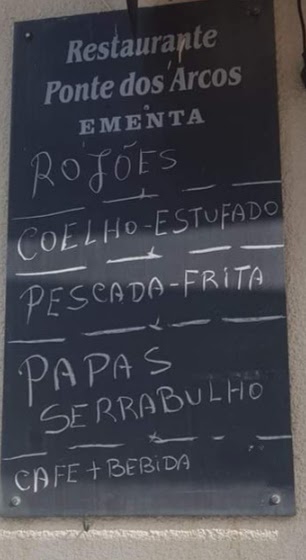 Restaurante
Ponte dos Arcos
EMENTA
ROJÕES
COELHO-ESTUFADO
PESCADA-FRITA
PAPAS
SERRABULHO
CAFE + BEBIDA